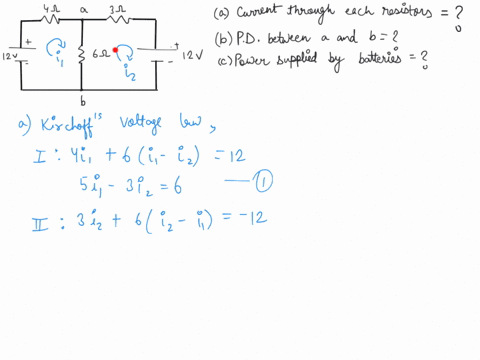 4Ω a 3Ω
(a) Current through each resistors = ?
+ 12V - i₁ 6Ω i₂ + - 12V
(b) P.D. between a and b = ?
(c) Power supplied by batteries = ?
b
a) Kirchoff's Voltage law,
I : 4i₁ + 6(i₁ - i₂) = 12
5i₁ - 3i₂ = 6 —— ①
II : 3i₂ + 6(i₂ - i₁) = -12